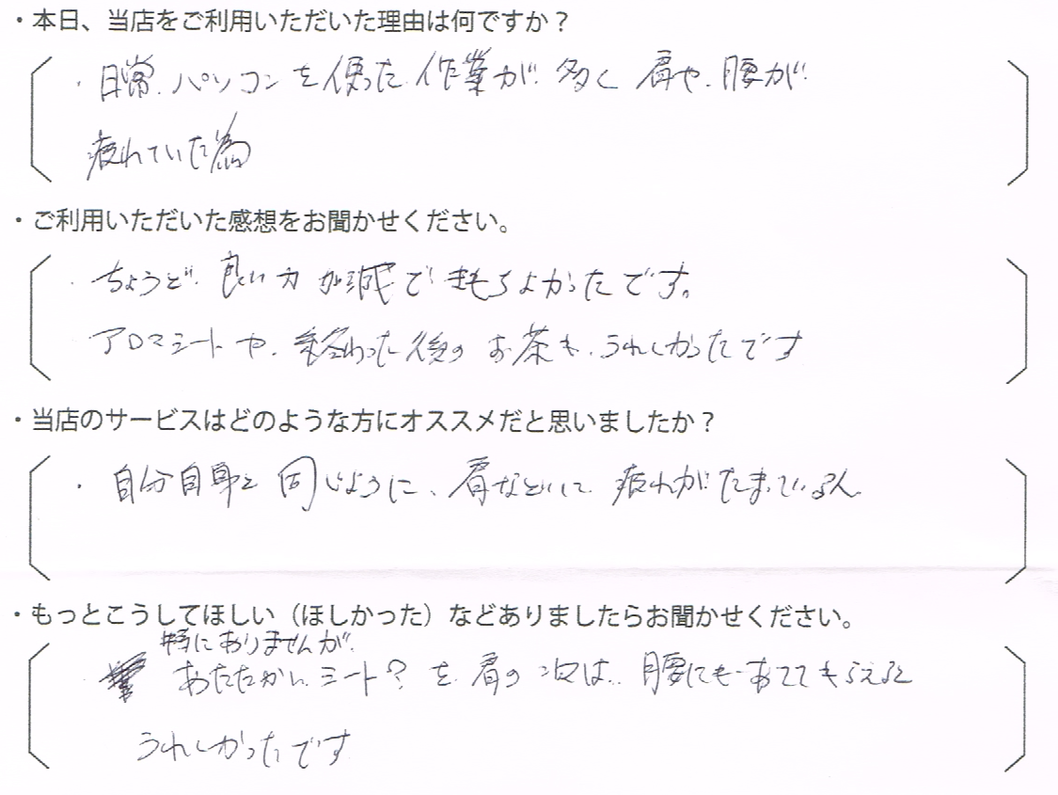 ・本日、当店をご利用いただいた理由は何ですか？
・日常、パソコンを使った作業が多く肩や、腰が
疲れていた為
・ご利用いただいた感想をお聞かせください。
・ちょうど良い力加減できもちよかったです。
アロマシートや、終わった後のお茶も、うれしかったです
・当店のサービスはどのような方にオススメだと思いましたか？
・自分自身と同じように、肩などに疲れがたまっている人
・もっとこうしてほしい（ほしかった）などありましたらお聞かせください。
特にありませんが、
・あたたかいシート？を肩の次は、腰にもあててもらえると
うれしかったです